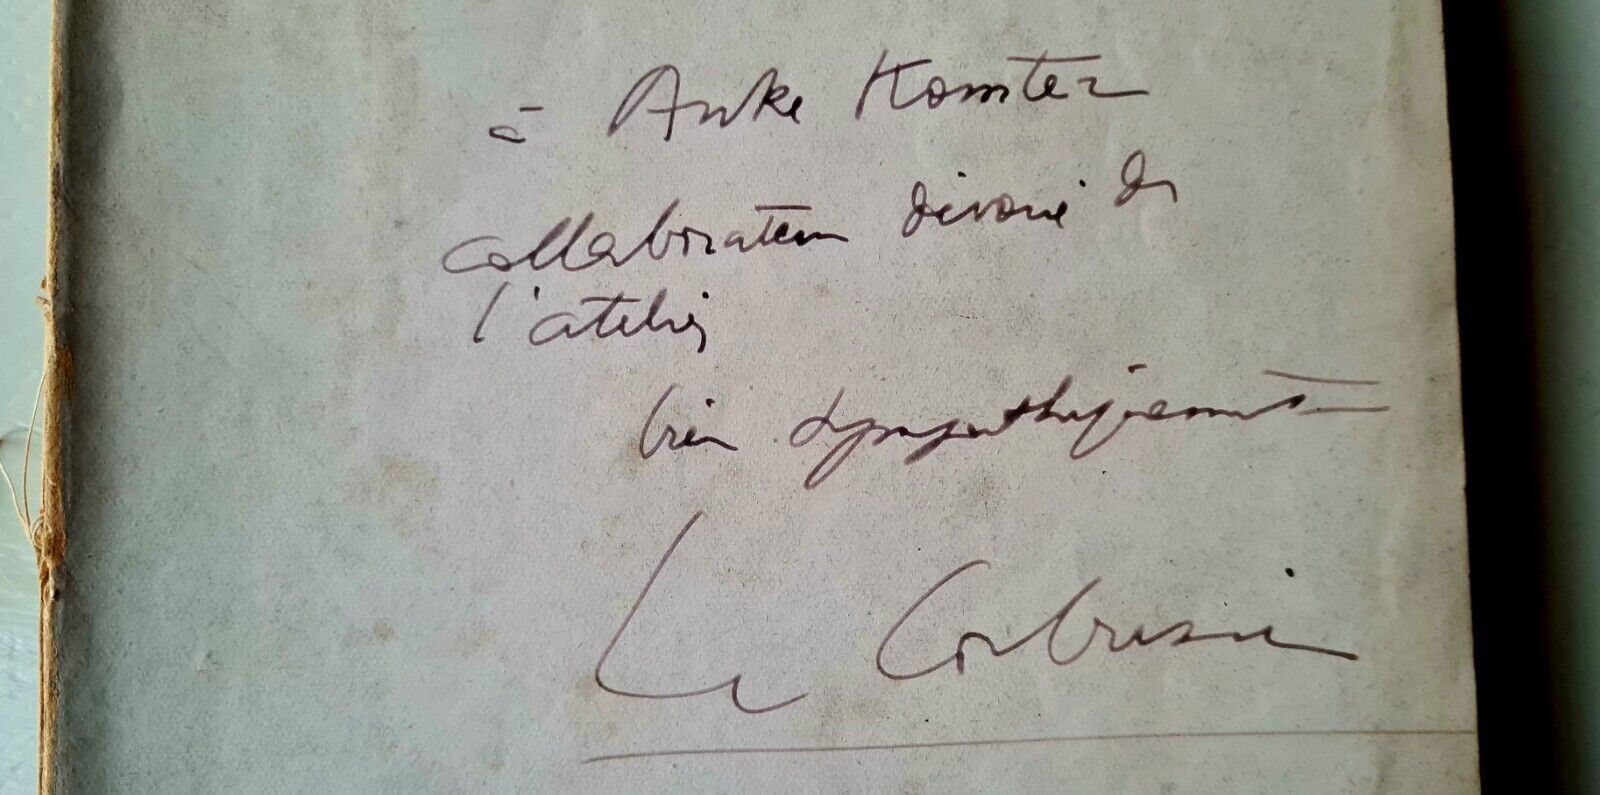 à Auke Komter
collaborateur dévoué de
l'atelier
bien sympathiquement
Le Corbusier